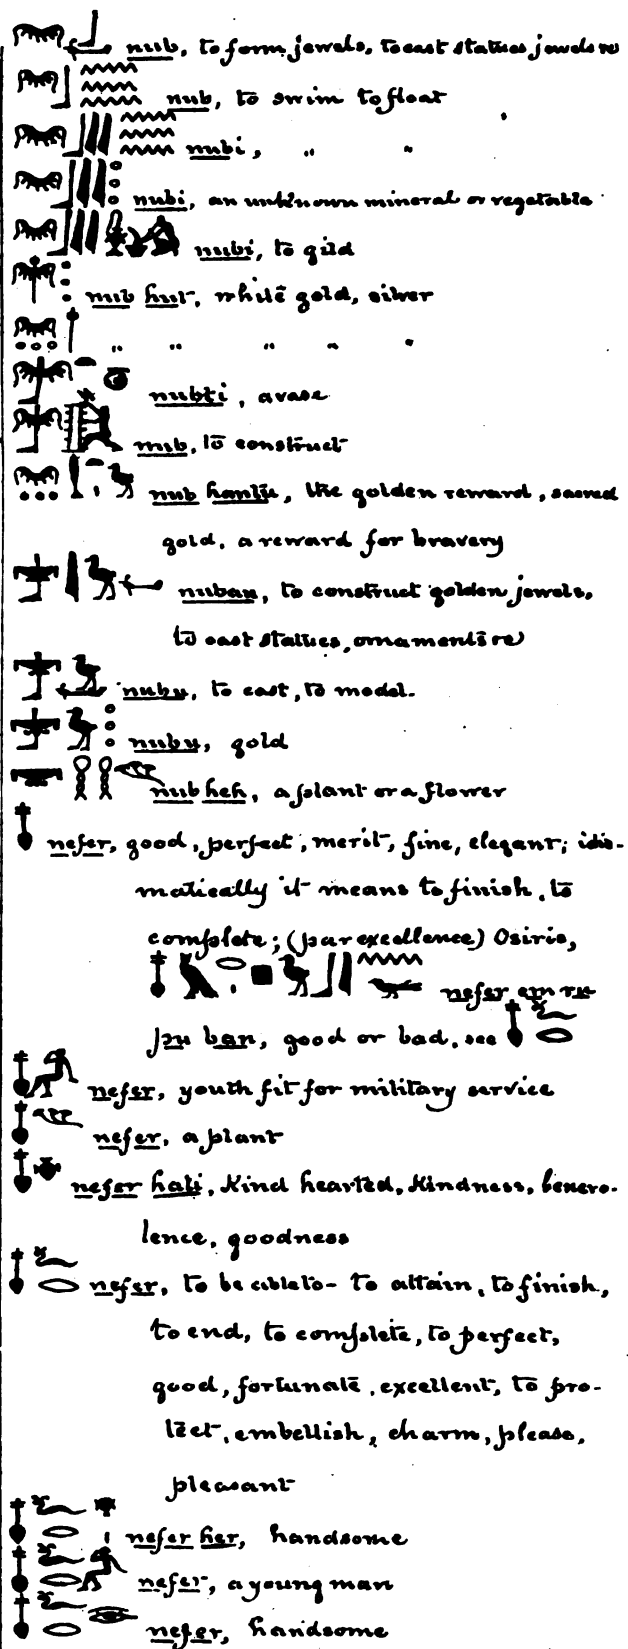 nub, to form jewels, to cast statues jewels
nub, to swim to float
nubi, " "
nubi, an unknown mineral or vegetable
nubi, to gild
nub hut, white gold, silver
" " " " "
nubti, a vase
nub, to construct
nub hantu, the golden reward, sacred
gold, a reward for bravery
nuban, to construct golden jewels,
to cast statues, ornaments
nubu, to cast, to model.
nubu, gold
nub heh, a plant or a flower
nefer, good, perfect, merit, fine, elegant; idio-
matically it means to finish, to
complete; (par excellence) Osiris,
nefer em
pu ban, good or bad, see
nefer, youth fit for military service
nefer, a plant
nefer hati, Kind hearted, Kindness, benevo-
lence, goodness
nefer, to be able to - to attain, to finish,
to end, to complete, to perfect,
good, fortunate, excellent, to pro-
tect, embellish, charm, please,
pleasant
nefer her, handsome
nefer, a young man
nefer, handsome